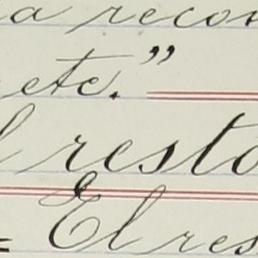 a recon
etc."
l resto
= El res